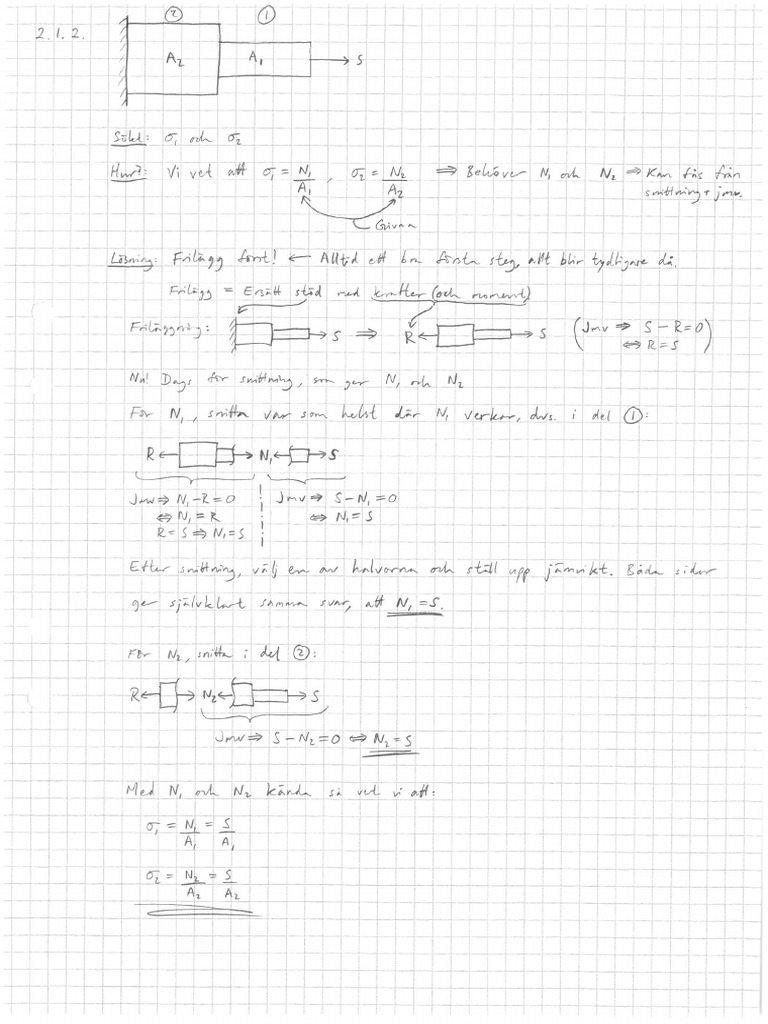 2.1.2.
② ①
A₂ A₁ S
Sökt: σ₁ och σ₂
Hur?: Vi vet att σ₁ = N₁/A₁ , σ₂ = N₂/A₂ ⇒ Behöver N₁ och N₂ ⇒ Kan fås från
snittning + jmv.
Givna
Lösning: Frilägg först! ← Alltid ett bra första steg, allt blir tydligare då.
Frilägg = Ersätt stöd med krafter (och moment)
Friläggning: S ⇒ R S (Jmv ⇒ S - R = 0
⇔ R = S)
Nu! Dags för snittning, som ger N₁ och N₂
För N₁, snitta var som helst där N₁ verkar, dvs. i del ①:
R N₁ S
Jmv ⇒ N₁ - R = 0 Jmv ⇒ S - N₁ = 0
⇔ N₁ = R ⇔ N₁ = S
R = S ⇒ N₁ = S
Efter snittning, välj en av halvorna och ställ upp jämvikt. Båda sidor
ger självklart samma svar, att N₁ = S.
För N₂, snitta i del ②:
R N₂ S
Jmv ⇒ S - N₂ = 0 ⇔ N₂ = S
Med N₁ och N₂ kända så vet vi att:
σ₁ = N₁/A₁ = S/A₁
σ₂ = N₂/A₂ = S/A₂